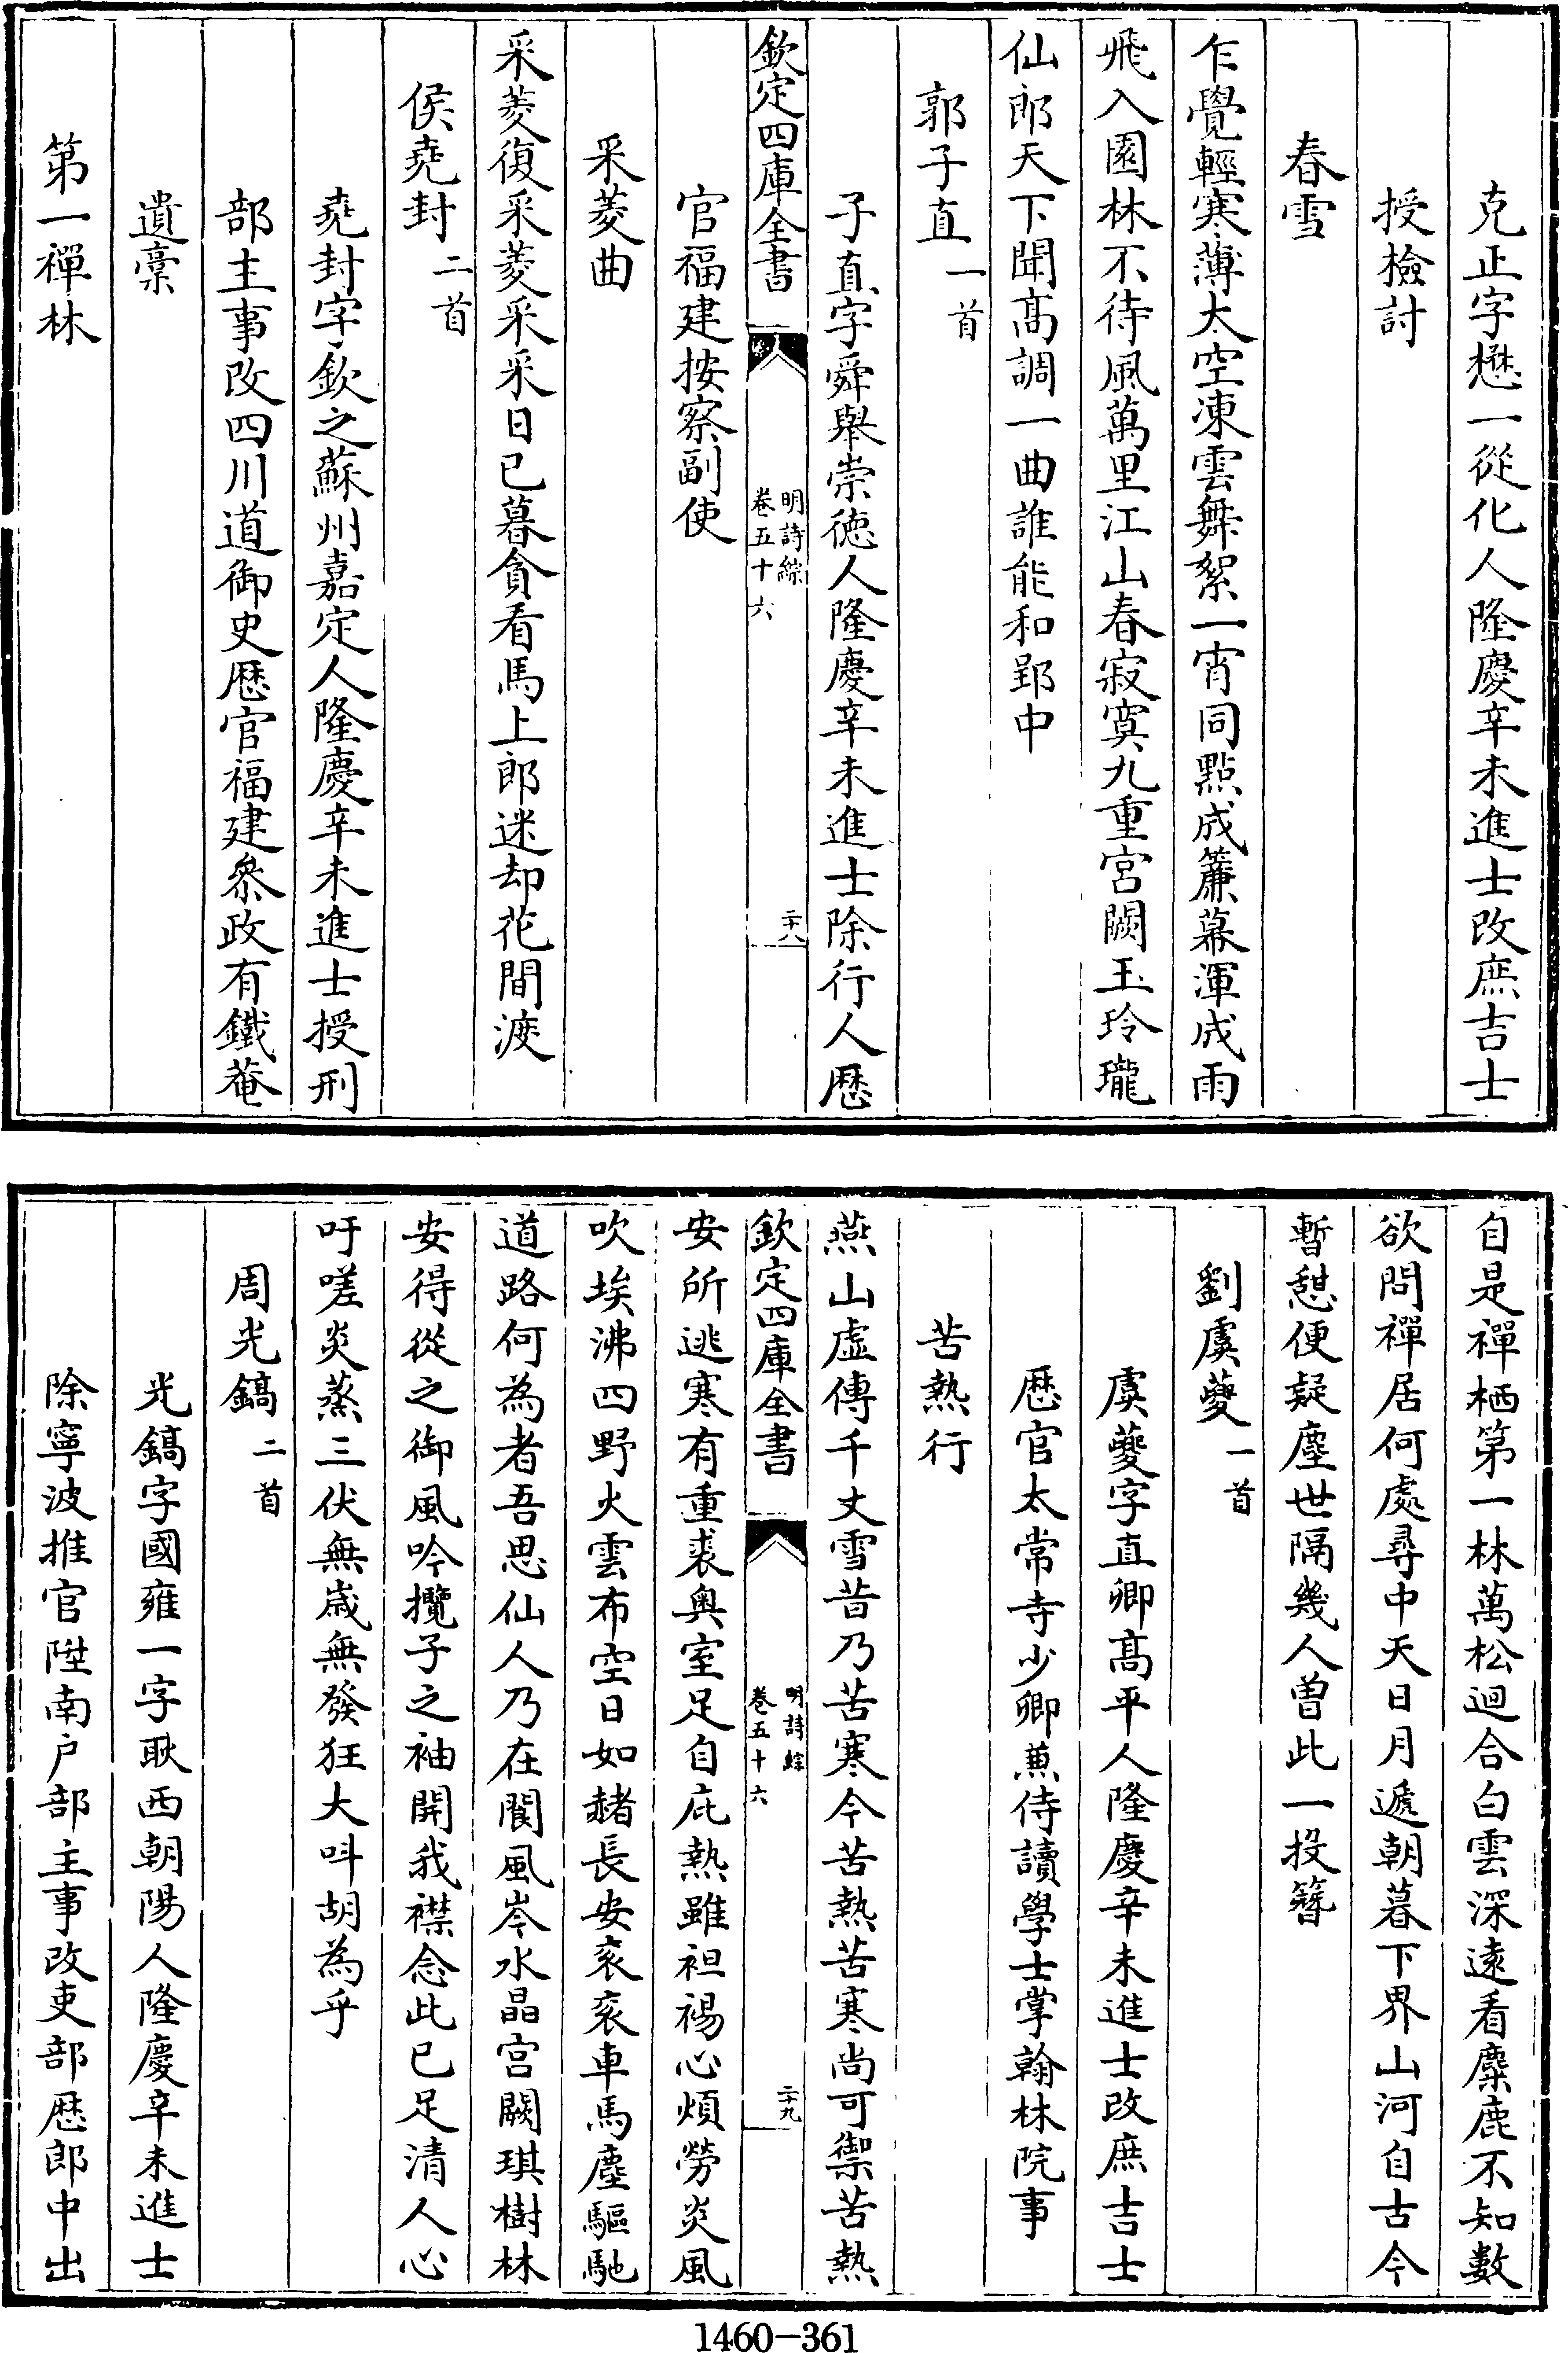 克正字懋一從化人隆慶辛未進士改庶吉士
授檢討
春雪
乍覺輕寒薄太空凍雲舞絮一宵同點成簾幕渾成雨
飛入園林不待風萬里江山春寂寞九重宮闕玉玲瓏
仙郎天下聞髙調一曲誰能和郢中
郭子直一首
子直字舜舉崇徳人隆慶辛未進士除行人歴
欽定四庫全書
明詩綜
卷五十六
二十八
官福建按察副使
采菱曲
采菱復采菱采采日已暮貪看馬上郎迷却花間渡
侯堯封二首
堯封字欽之蘇州嘉定人隆慶辛未進士授刑
部主事改四川道御史歴官福建叅政有鐵菴
遺稾
第一禪林
自是禪栖第一林萬松迴合白雲深逺看麋鹿不知數
欲問禪居何處尋中天日月遞朝暮下界山河自古今
暫憩便疑塵世隔幾人曽此一投簪
劉虞夔一首
虞夔字直卿髙平人隆慶辛未進士改庶吉士
歴官太常寺少卿兼侍讀學士掌翰林院事
苦熱行
燕山虚傳千丈雪昔乃苦寒今苦熱苦寒尚可禦苦熱
欽定四庫全書
明詩綜
卷五十六
二十九
安所逃寒有重裘奥室足自庇熱雖袒裼心煩勞炎風
吹埃沸四野火雲布空日如赭長安衮衮車馬塵驅馳
道路何為者吾思仙人乃在閬風岑水晶宫闕琪樹林
安得從之御風吟攬子之袖開我襟念此已足清人心
吁嗟炎蒸三伏無嵗無發狂大呌胡為乎
周光鎬二首
光鎬字國雍一字耿西朝陽人隆慶辛未進士
除寧波推官陞南户部主事改吏部歴郎中出
1460-361